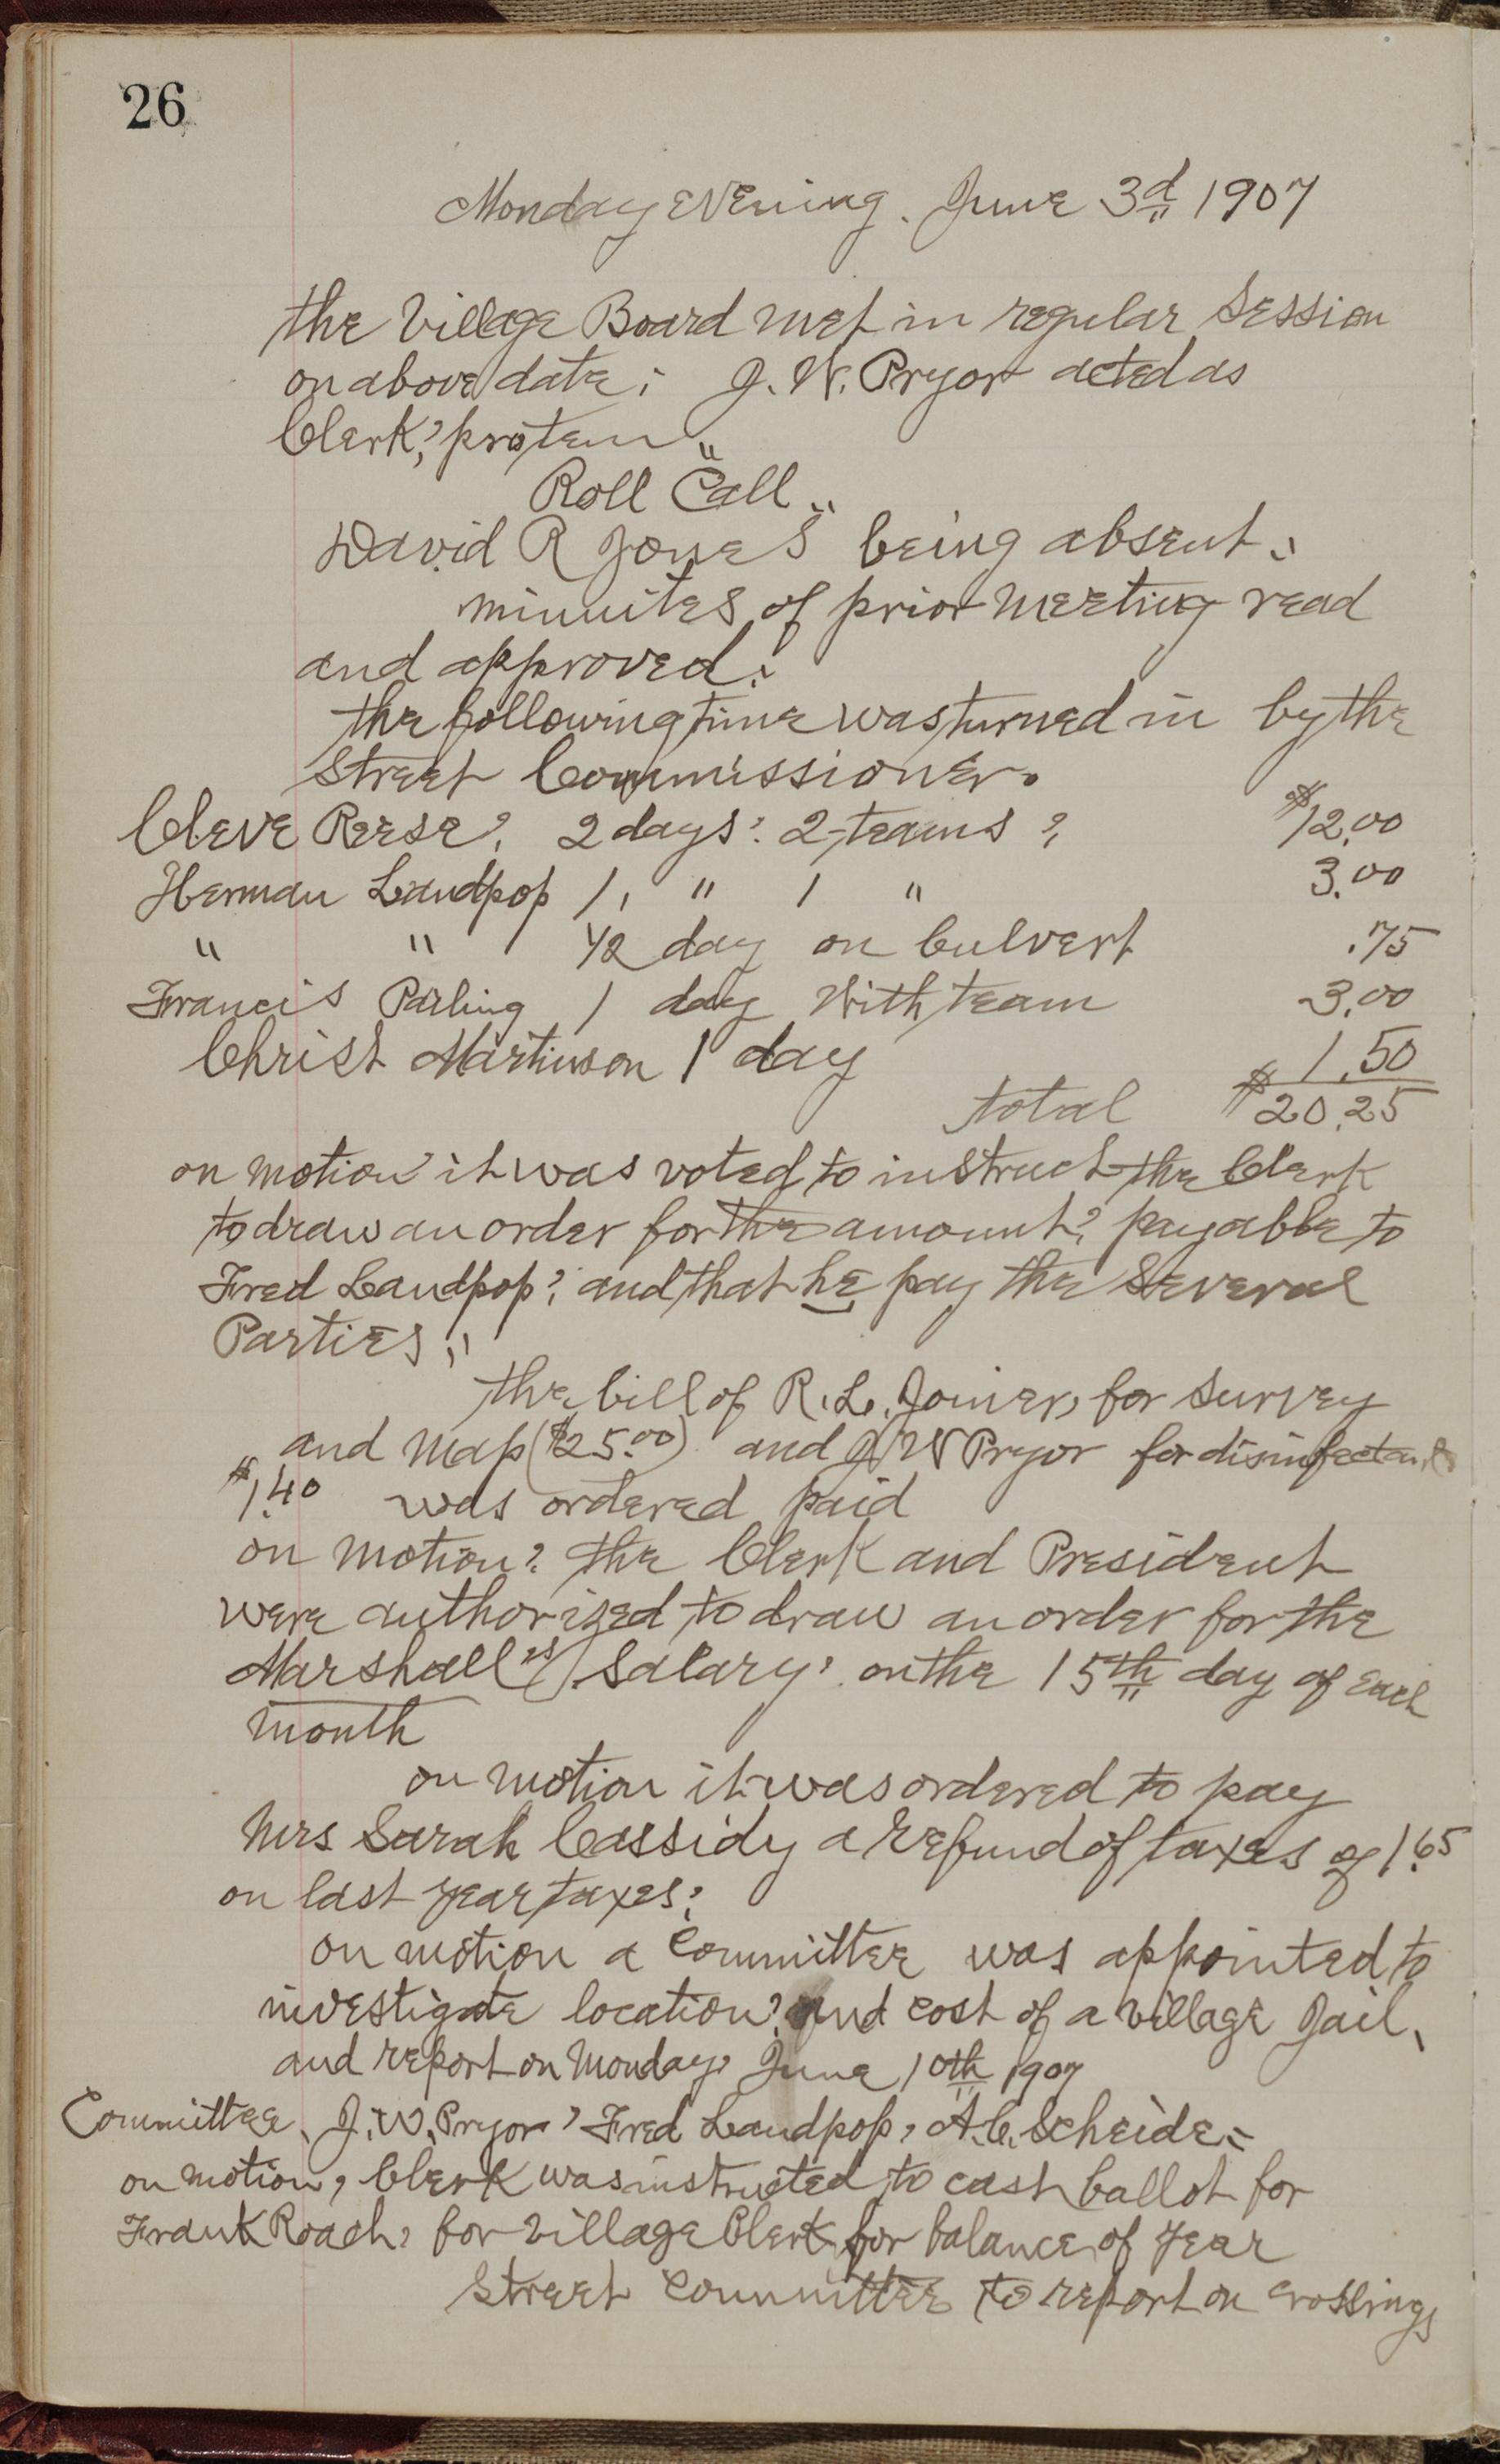 26
Monday Evening. June 3d 1907
the Village Board met in regular Session
on above date; J. W. Pryor acted as
Clerk, protem "
Roll Call "
David R Jones being absent.
minuites of prior meeting read
and approved.
the following time was turned in by the
Street Commissioner.
Cleve Reese, 2 days, 2 teams, $12.00
Herman Landpop 1, " 1 " 3.00
" " 1/2 day on Culvert .75
Francis Parling 1 day With team 3.00
Christ Martinson 1 day 1.50
total $20.25
on motion it was voted to instruct the Clerk
to draw an order for the amount, payable to
Fred Landpop, and that he pay the Several
Parties,"
the bill of R. L. Joiner, for Survey
and map ($25.00) and J W Pryor for disinfectants
$1.40 was ordered paid
on motion, the Clerk and President
were authorized to draw an order for the
Marshall's Salary, on the 15th day of Each
month
on motion it was ordered to pay
Mrs Sarah Cassidy a refund of taxes of 1.65
on last year taxes,
on motion a Committee was appointed to
investigate location, and cost of a village Jail,
and report on Monday, June 10th 1907
Committee, J. W. Pryor, Fred Landpop, A. C. Scheide.
on motion, Clerk was instructed to cash ballot for
Frank Roach, for Village Clerk for balance of Year
Street Committee to report on Crossings